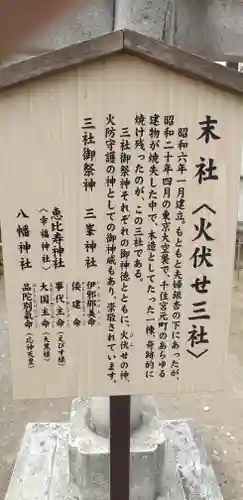 末社〈火伏せ三社〉
昭和六年一月建立。もともと夫婦銀杏の下にあったが、
昭和二十年四月の東京大空襲で、千住宮元町のあらゆる
建物が焼失した中で、木造としてたった一棟、奇跡的に
焼け残ったのが、この三社である。
三社御祭神それぞれの御神徳とともに、火伏せの神、
火防守護の神としての御神威もあり、崇敬されています。
三社御祭神
三峯神社
伊邪那美命
倭建命
恵比寿神社
〈幸福神社〉
事代主命（えびす様）
大国主命（大黒様）
八幡神社
品陀別命（応神天皇）